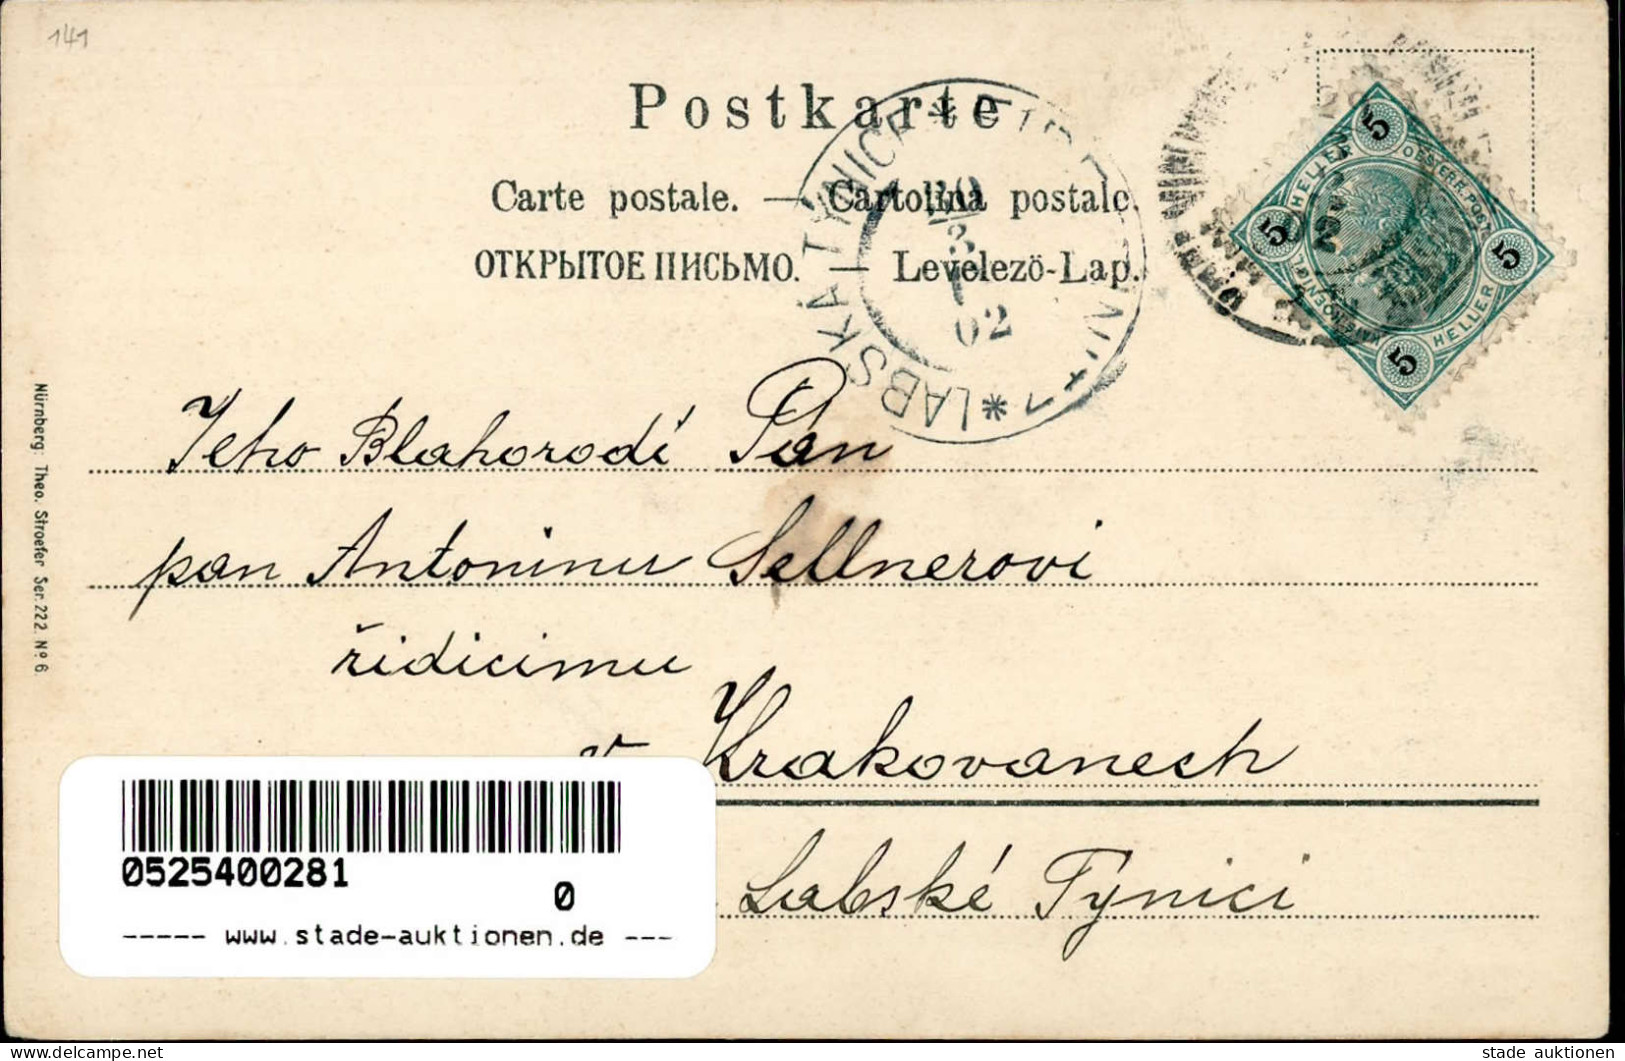 141
Postkarte
Carte postale. — Cartolina postale.
ОТКРЫТОЕ ПИСЬМО. — Levelező-Lap.
LABSKÁ TÝNICE
02
5 HELLER 5
OESTERR. POST
5 HELLER 5
Jeho Blahorodí Pán
pan Antonínu Sellnerovi
řídicimu
v Krakovanech
Labské Týnici
Nürnberg: Theo. Stroefer Ser. 222. Nº 6.
0525400281
0
----- www.stade-auktionen.de ---
www.delcampe.net
stade auktionen